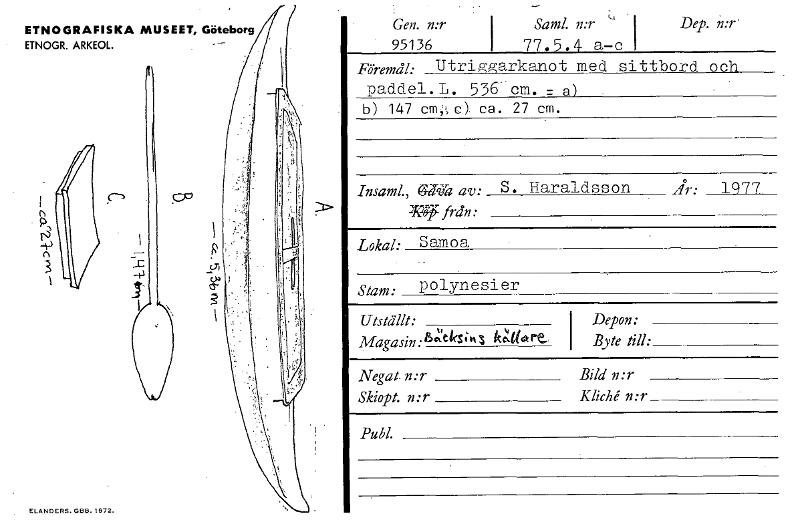 ETNOGRAFISKA MUSEET, Göteborg
ETNOGR. ARKEOL.
A.
B.
C.
ca. 5,36m
1,47m
ca 27cm
ELANDERS. GBB. 1972.
Gen. n:r Saml. n:r Dep. n:r
95136 77.5.4 a-c
Föremål: Utriggarkanot med sittbord och
paddel. L. 536 cm. = a)
b) 147 cm, c) ca. 27 cm.
Insaml., Gåva av: S. Haraldsson År: 1977
Köp från:
Lokal: Samoa
Stam: polynesier
Utställt: Depon:
Magasin: Bäcksins källare Byte till:
Negat n:r Bild n:r
Skiopt. n:r Kliché n:r
Publ.